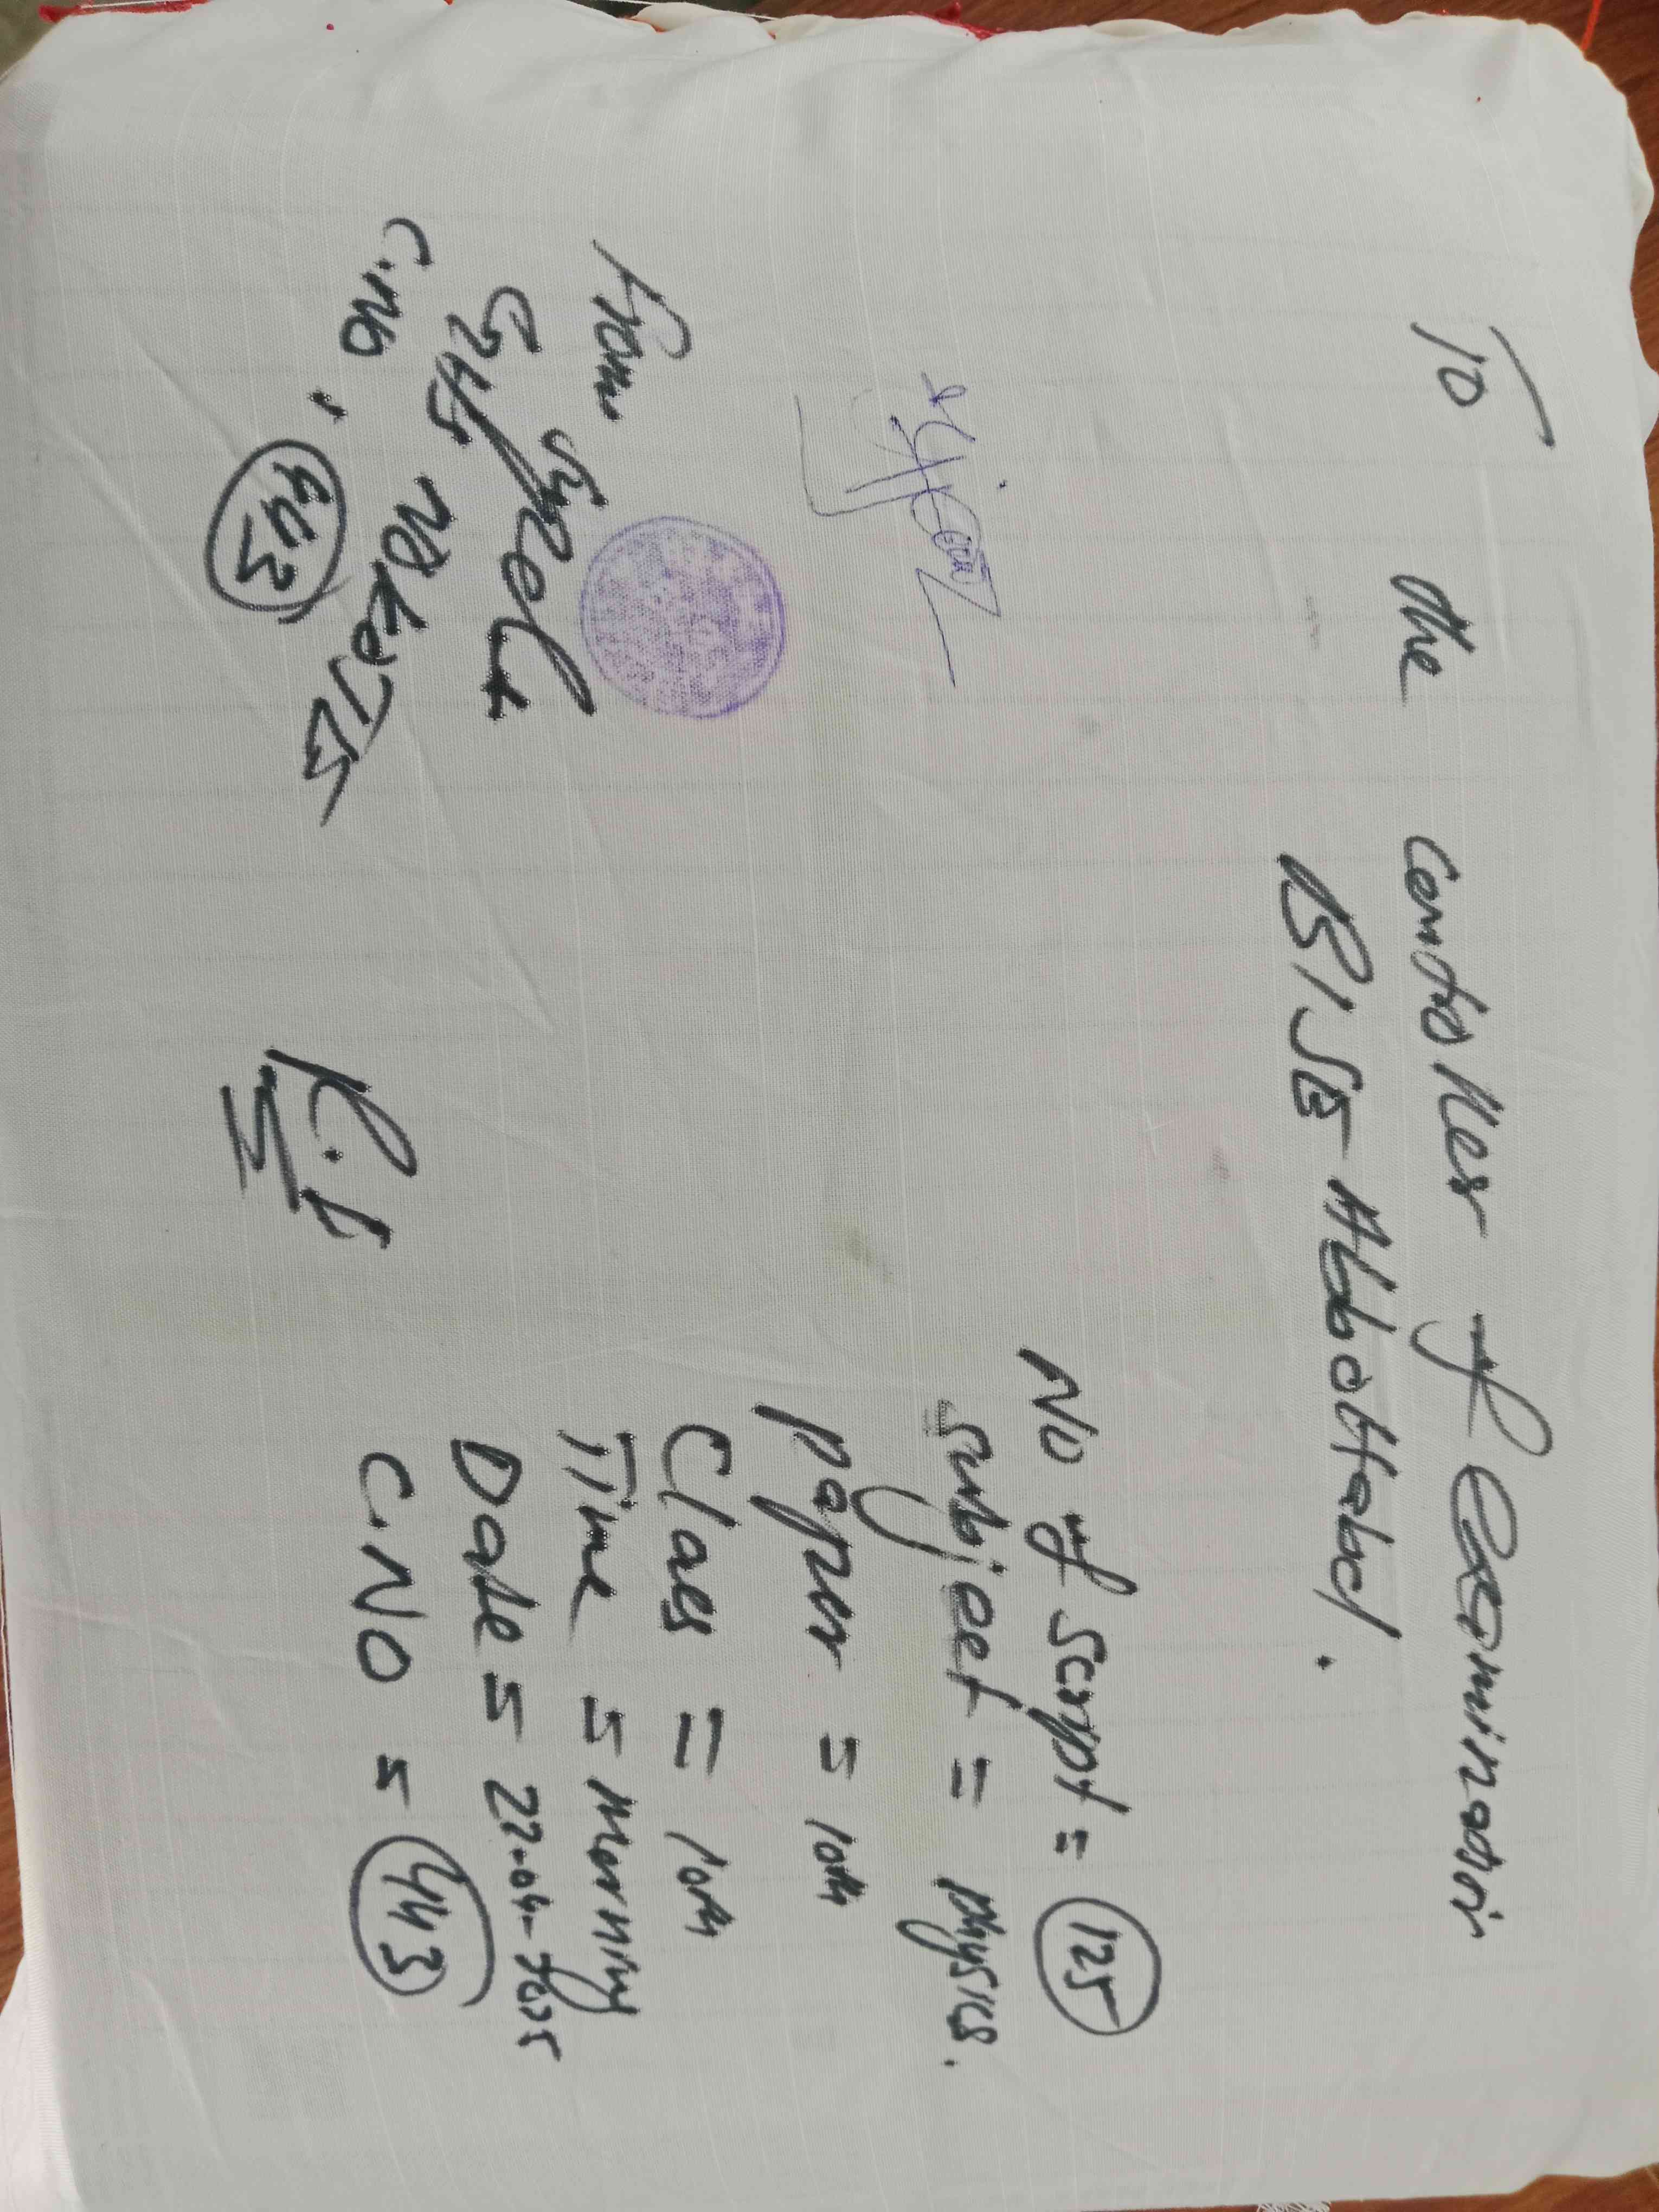 To the controller of Examination
BISE Abbottabad.
No of Script = 125
Subject = physics.
Paper = 10th
Class = 10th
Time = Morning
Date = 22-04-2025
C.NO = 443
From
GHS
C.No. 443